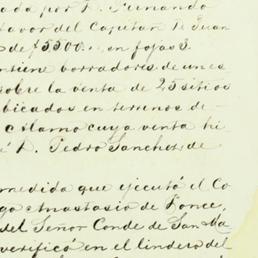 ada por D. Fernando
favor del Capitan D. Juan
de $5500. en fojas 3.
ntiene borradores de unes
sobre la venta de 25 sitios
bicados en terrenos de
c Alamo cuya venta hi
é D. Pedro Sanchez de
rmedida que ejecutó el Co
go Anastasio de Ponce,
del Señor Conde de San Ma
verificó en el lindero del